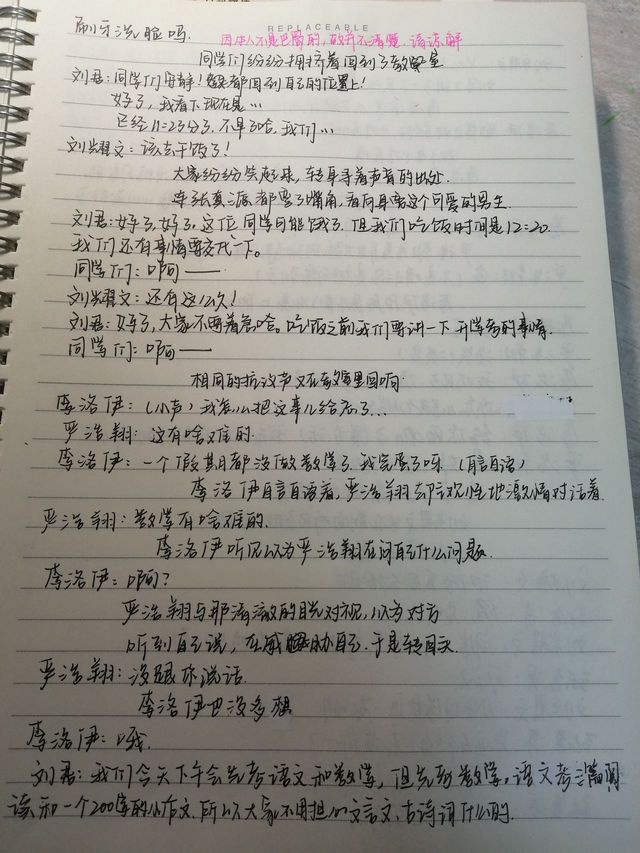 刷牙洗脸吗.
REPLACEABLE
因本人不是巴蜀的，故并不清楚，请谅解
同学们纷纷拥挤着回到了教室
刘君：同学们安静！都回到自己的位置上！
好了，我看下现在是…
已经11:23分了，不早了哈，我们…
刘耀文：该去干饭了！
大家纷纷笑起来，转身寻着声音的出处.
牵张真源都弯了嘴角，看向身后这个可爱的男生.
刘君：好了，好了，这位同学可能饿了，但我们吃饭时间是12:20.
我们还有事情要交代一下。
同学们：啊——
刘耀文：还有这么久！
刘君：好了，大家不要着急哈。吃饭之前我们要讲一下开学考的事情.
同学们：啊——
相同的抗议声又在教室里回响.
李洛伊：（小声）我怎么把这事儿给忘了…
严浩翔：这有啥难的.
李洛伊：一个假期都没做数学了，我完蛋了呀.（自言自语）
李洛伊自言自语着，严浩翔却主观性地激情对话着.
严浩翔：数学有啥难的.
李洛伊听见以为严浩翔在问自己什么问题.
李洛伊：啊？
严浩翔与那清澈的目光对视，以为对方
听到自己说，在威胁自己，于是转回头.
严浩翔：没跟你说话.
李洛伊也没多想
李洛伊：哦.
刘君：我们今天下午会先考语文和数学，但先考数学，语文考三篇阅
读和一个200字的小作文，所以大家不用担心文言文、古诗词什么的.